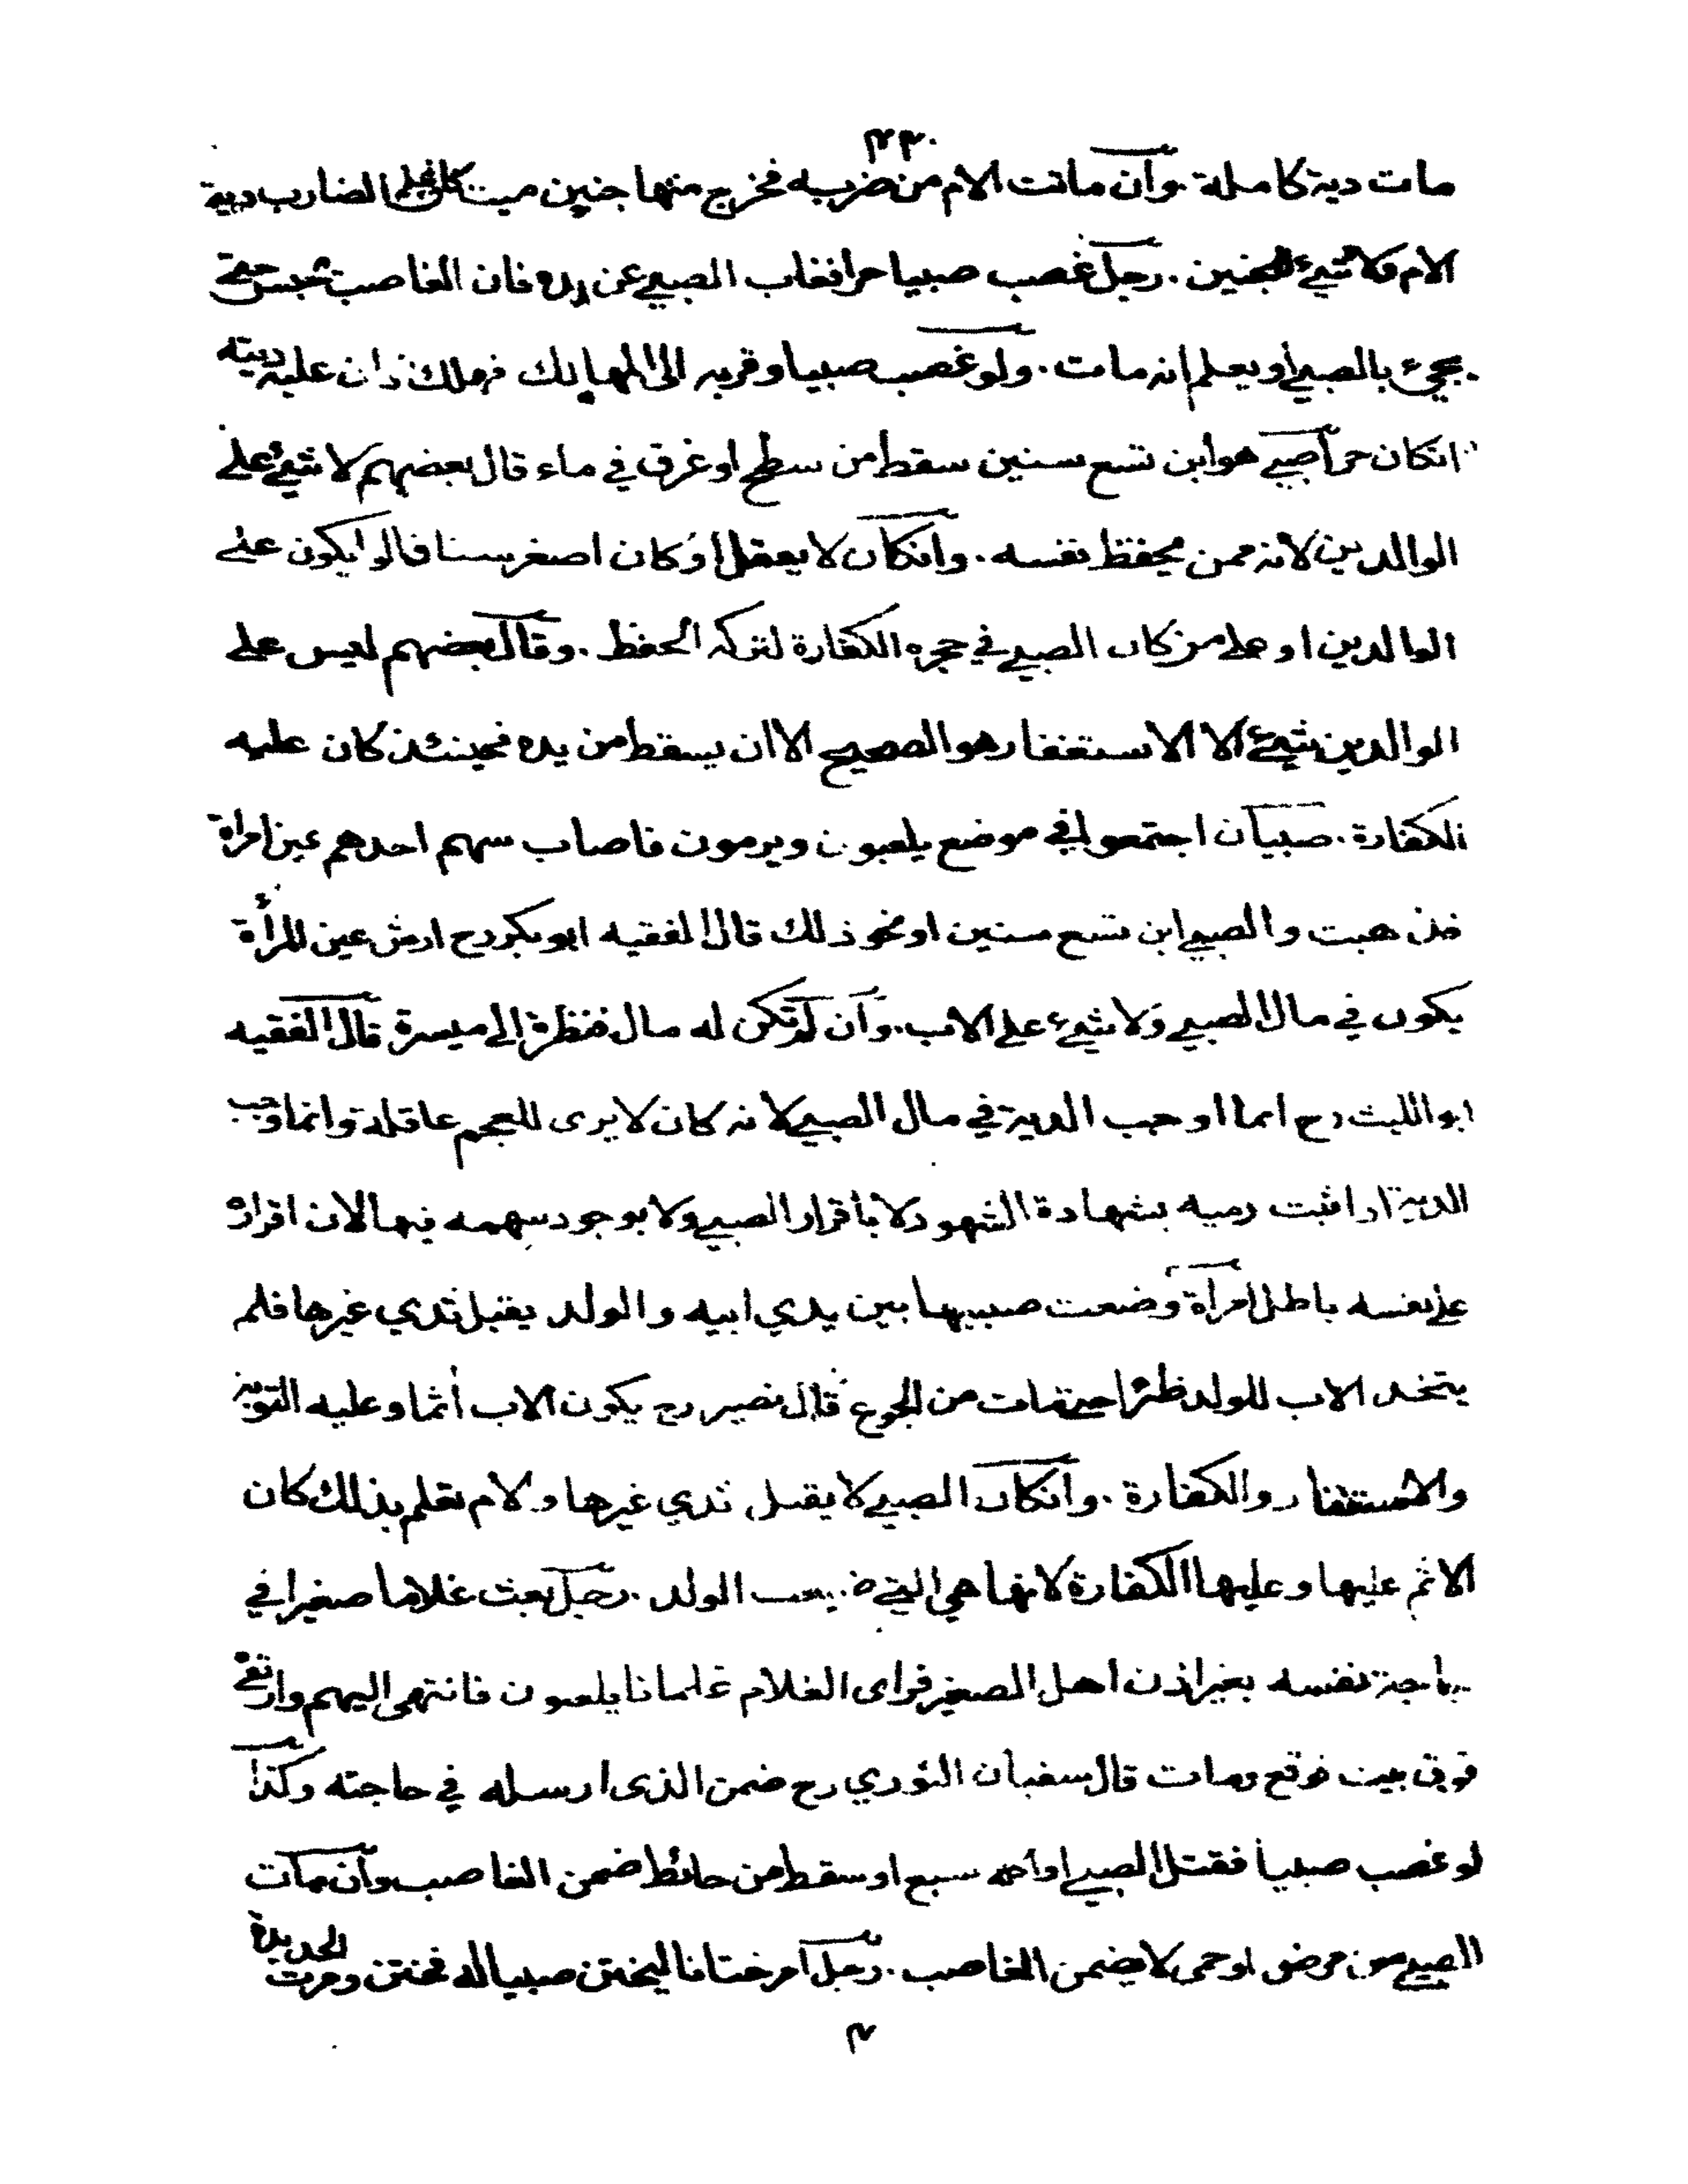 ٤٣٠
مات دية كاملة . وان ماتت الام من ضربه فخرج منها جنين ميت كان على الضارب دية
الام ولا شيء للجنين . رجل غصب صبيا حرا فغاب الصبي عن يده فان الغاصب يحبس حتى
يجيء بالصبي أو يعلم انه مات . ولو غصب صبيا وقربه الى المهالك فهلك كان عليه ديته
انكان حرا صبي هو ابن تسع سنين سقط من سطح او غرق في ماء قال بعضهم لا شيء على
الوالدين لانه ممن يحفظ نفسه . وانكان لا يعقل او كان اصغر سنا قالوا يكون على
الوالدين او على من كان الصبي في حجره الكفارة لتركه الحفظ . وقال بعضهم ليس على
الوالدين شيء الا الاستغفار هو الصحيح الا ان يسقط من يده فحينئذ كان عليه
الكفارة . صبيان اجتمعوا في موضع يلعبون ويرمون فاصاب سهم احدهم عين امرأة
فذهبت والصبي ابن تسع سنين او نحو ذلك قال الفقيه ابو بكر رح ارش عين المرأة
يكون في مال الصبي ولا شيء على الاب . وان لم تكن له مال فنظرة الى ميسرة قال الفقيه
ابو الليث رح انما اوجب الدية في مال الصبي لانه كان لا يرى للعجم عاقلة وانما وجب
الدية اذا ثبت رميه بشهادة الشهود لا بأقرار الصبي ولا بوجود سهمه فيها لان اقراره
على نفسه باطل امرأة وضعت صبيها بين يدي ابيه والولد يقبل ثدي غيرها فلم
يتخذ الاب للولد ظئرا حتى مات من الجوع قال نصير رح يكون الاب أثما وعليه التوبة
والاستغفار والكفارة . وانكان الصبي لا يقبل ثدي غيرها والام تعلم بذلك كان
الاثم عليها وعليها الكفارة لانها هي التي ضيعت الولد . رجل بعث غلاما صغيرا في
حاجة نفسه بغير اذن اهل الصغير فراى الغلام غلمانا يلعبون فانتهى اليهم وارتقى
فوق بيت فوقع ومات قال سفيان الثوري رح ضمن الذى ارسله في حاجته وكذا
لو غصب صبيا فقتل الصبي او سبع او سقط من حائط ضمن الغاصب وان مات
الصبي من مرض او حمى لا يضمن الغاصب . رجل امر ختانا ليختن صبيا له فختن ومرت الحديدة